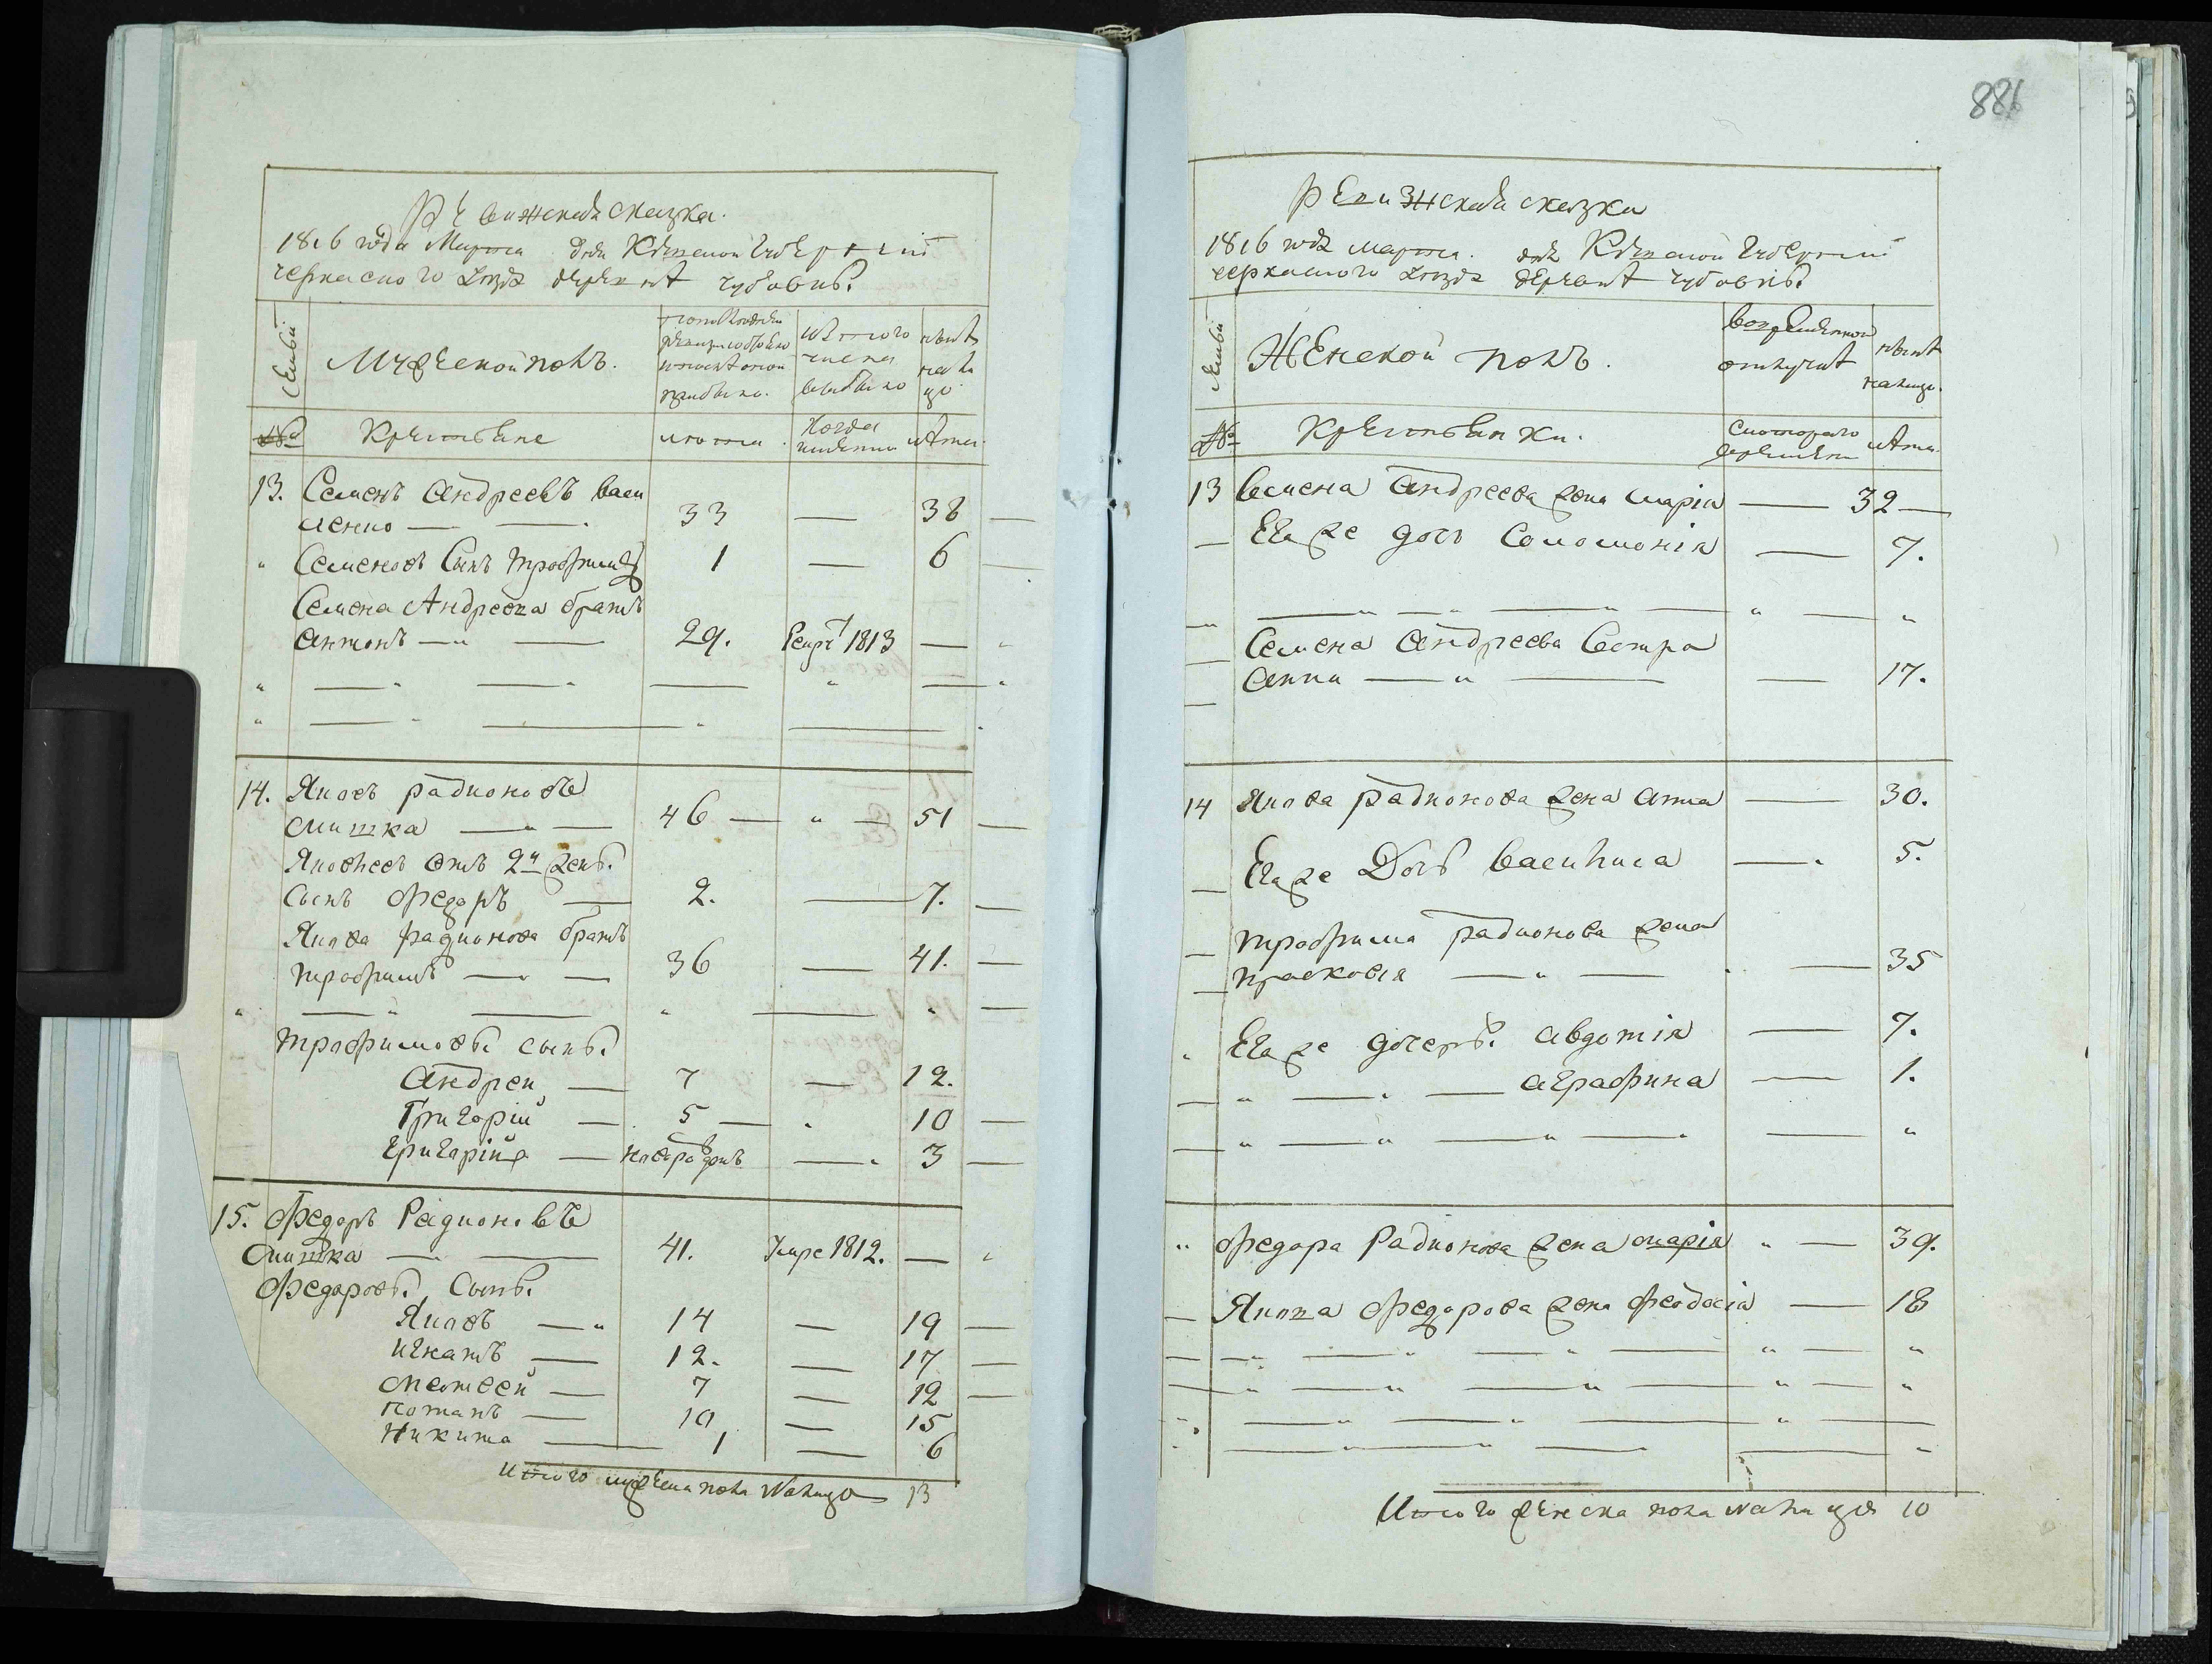 Ревижская сказка.
1816 года Марта дня Киевской Губернїи
черкаского уезда деревнѣ чубовкѣ
Семьи
Мужеской полъ.
изтого
числа
выбыло
нынѣ
на ли
цо
№
Крестьяне
лета.
Когда
имянно
лѣта.
13. Семенъ Андреевъ васи
ленко — 33 — 38
Семеновъ Сынъ трофимъ 1 — 6
Семена Андреева братъ
антонъ — 29. Рекрт 1813 —
14. Яковъ радионовъ
смитка — 46 — 51
Яковлевъ отъ 2й жены.
Сынъ федоръ — 2. — 7.
Якова радионова братъ
трофимъ — 36 — 41.
трофимовы сыны.
Андрей — 7 — 12.
Григорїй — 5 — 10
Григарїй — 3
15. федоръ Радионовъ
Смитка — 41. Умре 1812. —
федоровы. Сыны.
Яковъ — 14 — 19
игнатъ — 12. — 17
матвей — 7 — 12
потапъ — 10 — 15
Никита — 1 — 6
Итого мужеска пола Налицо 13
881
Ревизская сказка
1816 года марта. дня Киевской Губернїи
черкаского уезда деревнѣ чубовкѣ
Семьи
Женской полъ.
Вовременной
отлучкѣ
нынѣ
налицо.
№
Крестьянки.
Скоторого
времяни
лѣта.
13 Семена Андреева жена марїя — 32
Ега же дочь Соломонїя — 7.
Семена Андреева Сестра
Анна — 17.
14 Якова радионова жена анна — 30.
Ега же Дочь василиса — 5.
трофима радионова жена
прасковїя — 35
Ега же дочеры. авдотїя — 7.
аграфина — 1.
федора Радионова жена марїя — 39.
Якова федорова жена феодосїя — 18
Итого женска пола налицо 10